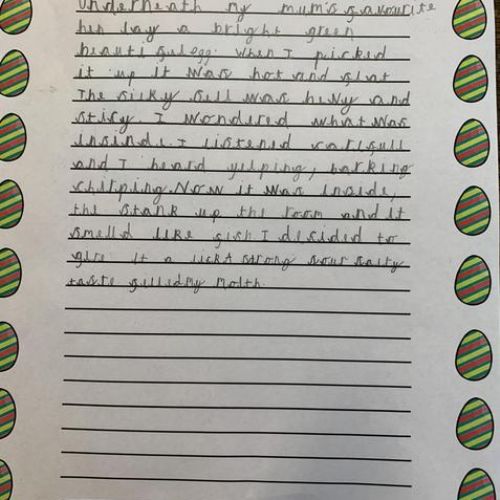 Underneath my mum's favourite
hen lay a bright green
beautifulegg. When I picked
it up it was hot and flat
The silky sell was hevy and
stify. I wondered what was
insinde. I listened carifull
and I heard yilping, barking
chirping. Now it was inside,
the stank up the room and it
smelld like fish I decided to
give it a lick A strong sour salty
taste filledmy moith.